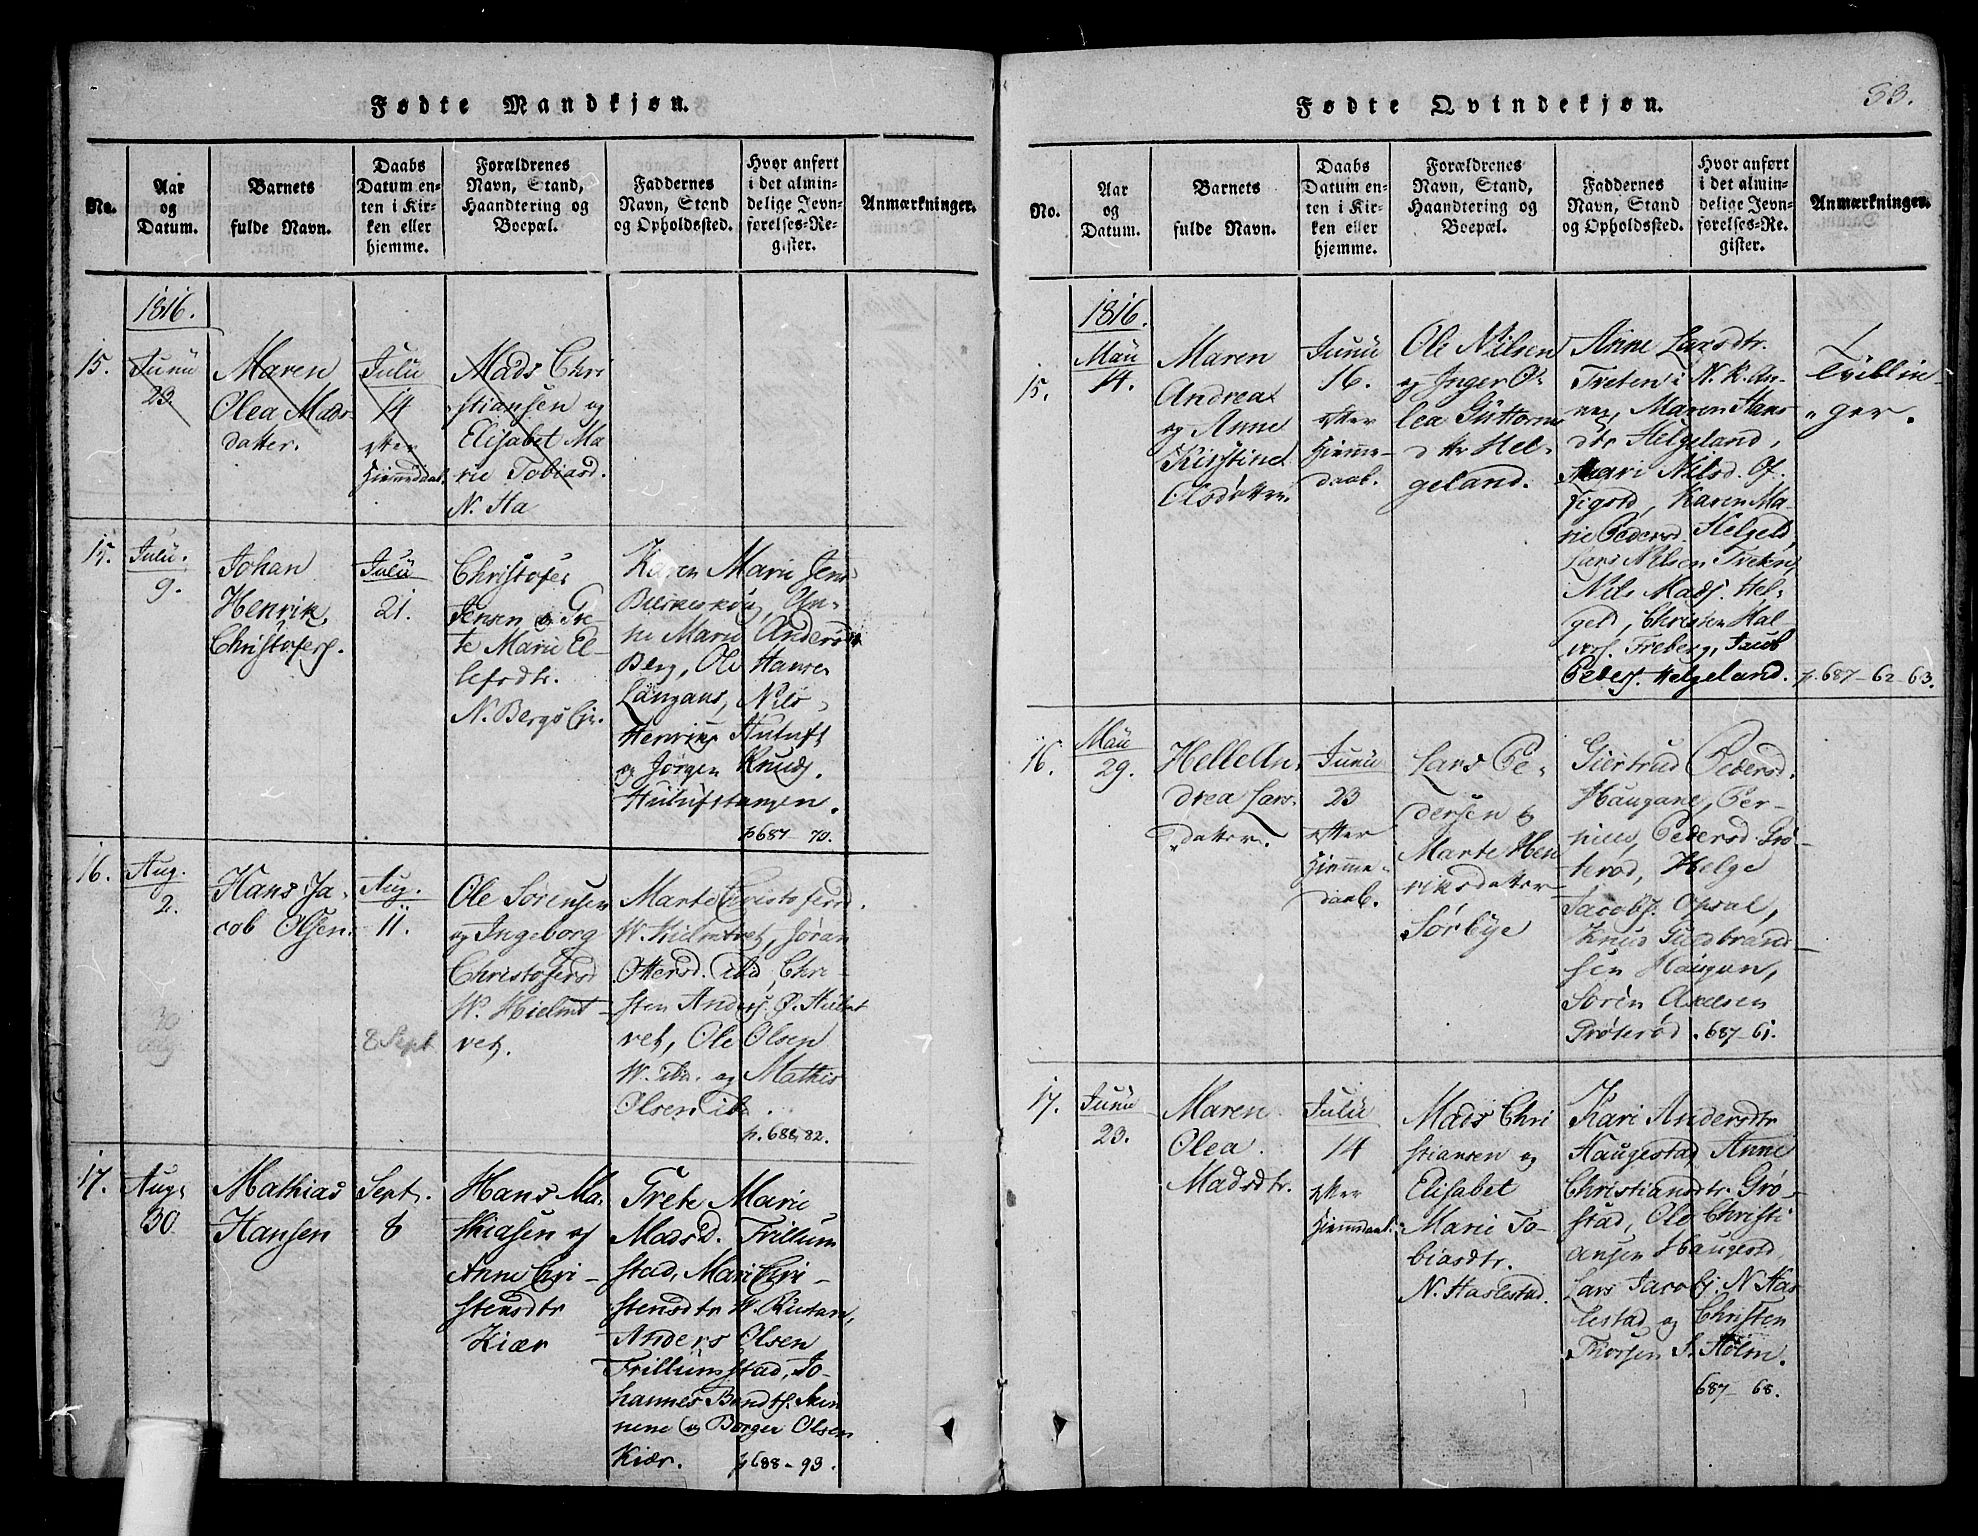 Fødte Mandkjøn.
No.
Aar
og
Datum.
Barnets
fulde Navn.
Daabs
Datum en-
ten i Kir-
ken eller
hjemme.
Forældrenes
Navn, Stand,
Haandtering og
Boepæl.
Faddernes
Navn, Stend
og Opholdssted.
Hvor anført
i det almin-
delige Jevn-
førelses-Re-
gister.
Anmærkninger.
1816.
15.
Junii
23.
Maren
Olea Mads-
datter.
Julii
14
efter
Hjemmedaab.
Mads Chri
stiansen og
Elisabet Ma
rie Tobiasd.
N. Ha
15.
Julii.
9.
Johan
Henrik
Christofers.
Julii
21.
Christofer
Jensen og Gre-
te Marie El-
lefsdtr.
N. Bergs Eje.
Karen Marie Jens
Birkeskou, An-
ne Marie Andersd.
Berg, Ole Hansen
Langans, Nils
Henriks Hutuft
og Jørgen Knuds.
Hutuftangen.
p 687 70.
16.
Aug.
2.
Hans Ja-
cob Olsen.
Aug.
11.
Ole Sørensen
og Ingeborg
Christofersd
W. Hielmt-
vet.
Marte Christofersd.
W. Hielmtvet, Jøran
Ottersd. ibid, Chri-
sten Anders. Ø. Hielmt
vet, Ole Olsen
W. ibid. og Mathis
Olsen ib.
p. 688, 82.
30
Aug.
8 Sept
17.
Aug.
30.
Mathias
Hansen
Sept.
8
Hans Ma-
thiasen og
Anne Chri-
stensdtr
Kiær
Grete Marie
Mads D. Trillum
stad, Mari Chri-
stensdtr W. Rustan,
Anders Olsen
Trillumstad, Jo-
hannes Bendts. Skin
nene og Borger Olsen
Kiær.
p 688 - 93.
Fødte Qvindekjøn.
53.
No.
Aar
og
Datum.
Barnets
fulde Navn.
Daabs
Datum en-
ten i Kir-
ken eller
hjemme.
Forældrenes
Navn, Stand,
Haandtering og
Boepæl.
Faddernes
Navn, Stand
og Opholdssted.
Hvor anført
i det almin-
delige Jevn-
førelses-Re-
gister.
Anmærkninger.
1816.
15.
Maii
14.
Maren
Andrea
og Anne
Kirstine
Olsdøttre.
Junii
16.
efter
Hjemme-
daab.
Ole Nilsen
og Inger O-
lea Guttorms
dtr Hel-
geland.
Anne Larsdtr.
Treten i N. K. An-
neg, Maren Hans
dtr Helgeland,
Mari Nilsd. Of
figstd, Karen Ma-
rie Pedersd. Helgeld,
Lars Nilsen Treten,
Nils Mads. Hel-
geld, Christen Hal-
vors. Freberg, Jacob
Peders. Helgeland.
p. 687 - 62 - 63.
Tvillin-
ger.
16.
Maii
29.
Helle An-
drea Lars-
datter.
Junii
23
efter
Hjemme-
daab.
Lars Pe-
dersen og
Marte Hen
riksdatter
Sørbye
Giertrud Pedersd.
Haugane, Per-
nille Pedersd. Grø-
terød, Helge
Jacobs. Opsal,
Knud Guldbrand-
sen Haugan,
Soren Axelsen
Grøterød
. 687 - 61.
17.
Junii
23.
Maren
Olea
Madsdtr.
Julii
14
efter
Hjemmedaab.
Mads Chri
stiansen og
Elisabet
Marie To-
biasdtr.
N. Haslestad.
Kari Andersdtr
Haugestad, Anne
Christiansdtr. Grø-
stad, Ole Christi
ansen Haugestd,
Lars Jacobs. N Has
lestad og Christen
Thorsen S. Holm.
687 - 68.